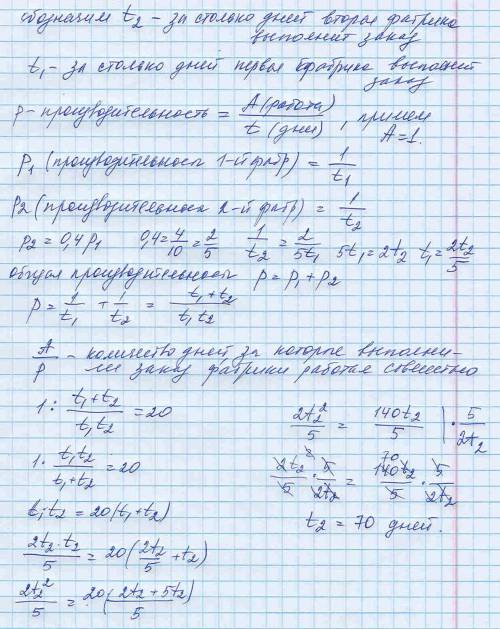 обозначим t₂ - за столько дней вторая фабрика
выполнит заказ
t₁ - за столько дней первая фабрика выполнит
заказ
p - производительность = A (работа) / t (дни), примем
A = 1.
P₁ (производительност 1-й фабр) = 1/t₁
P₂ (производительност 2-й фабр) = 1/t₂
p₂ = 0,4 p₁ 0,4 = 4/10 = 2/5 1/t₂ = 2/5t₁ 5t₁ = 2t₂ t₁ = 2t₂/5
общая производительность p = p₁ + p₂
p = 1/t₁ + 1/t₂ = t₁ + t₂ / t₁ t₂
A/p - количество дней, за которое выполни-
ли заказ фабрики работая совместно
1 : t₁ + t₂ / t₁ t₂ = 20
1 · t₁ t₂ / t₁ + t₂ = 20
t₁ t₂ = 20 (t₁ + t₂)
2t₂ · t₂ / 5 = 20 (2t₂/5 + t₂)
2t₂²/5 = 20 (2t₂ + 5t₂) / 5
2t₂²/5 = 140t₂/5 | · 5/2t₂
2t₂²/5 · 5/2t₂ = 140t₂/5 · 5/2t₂
70
t₂ = 70 дней.